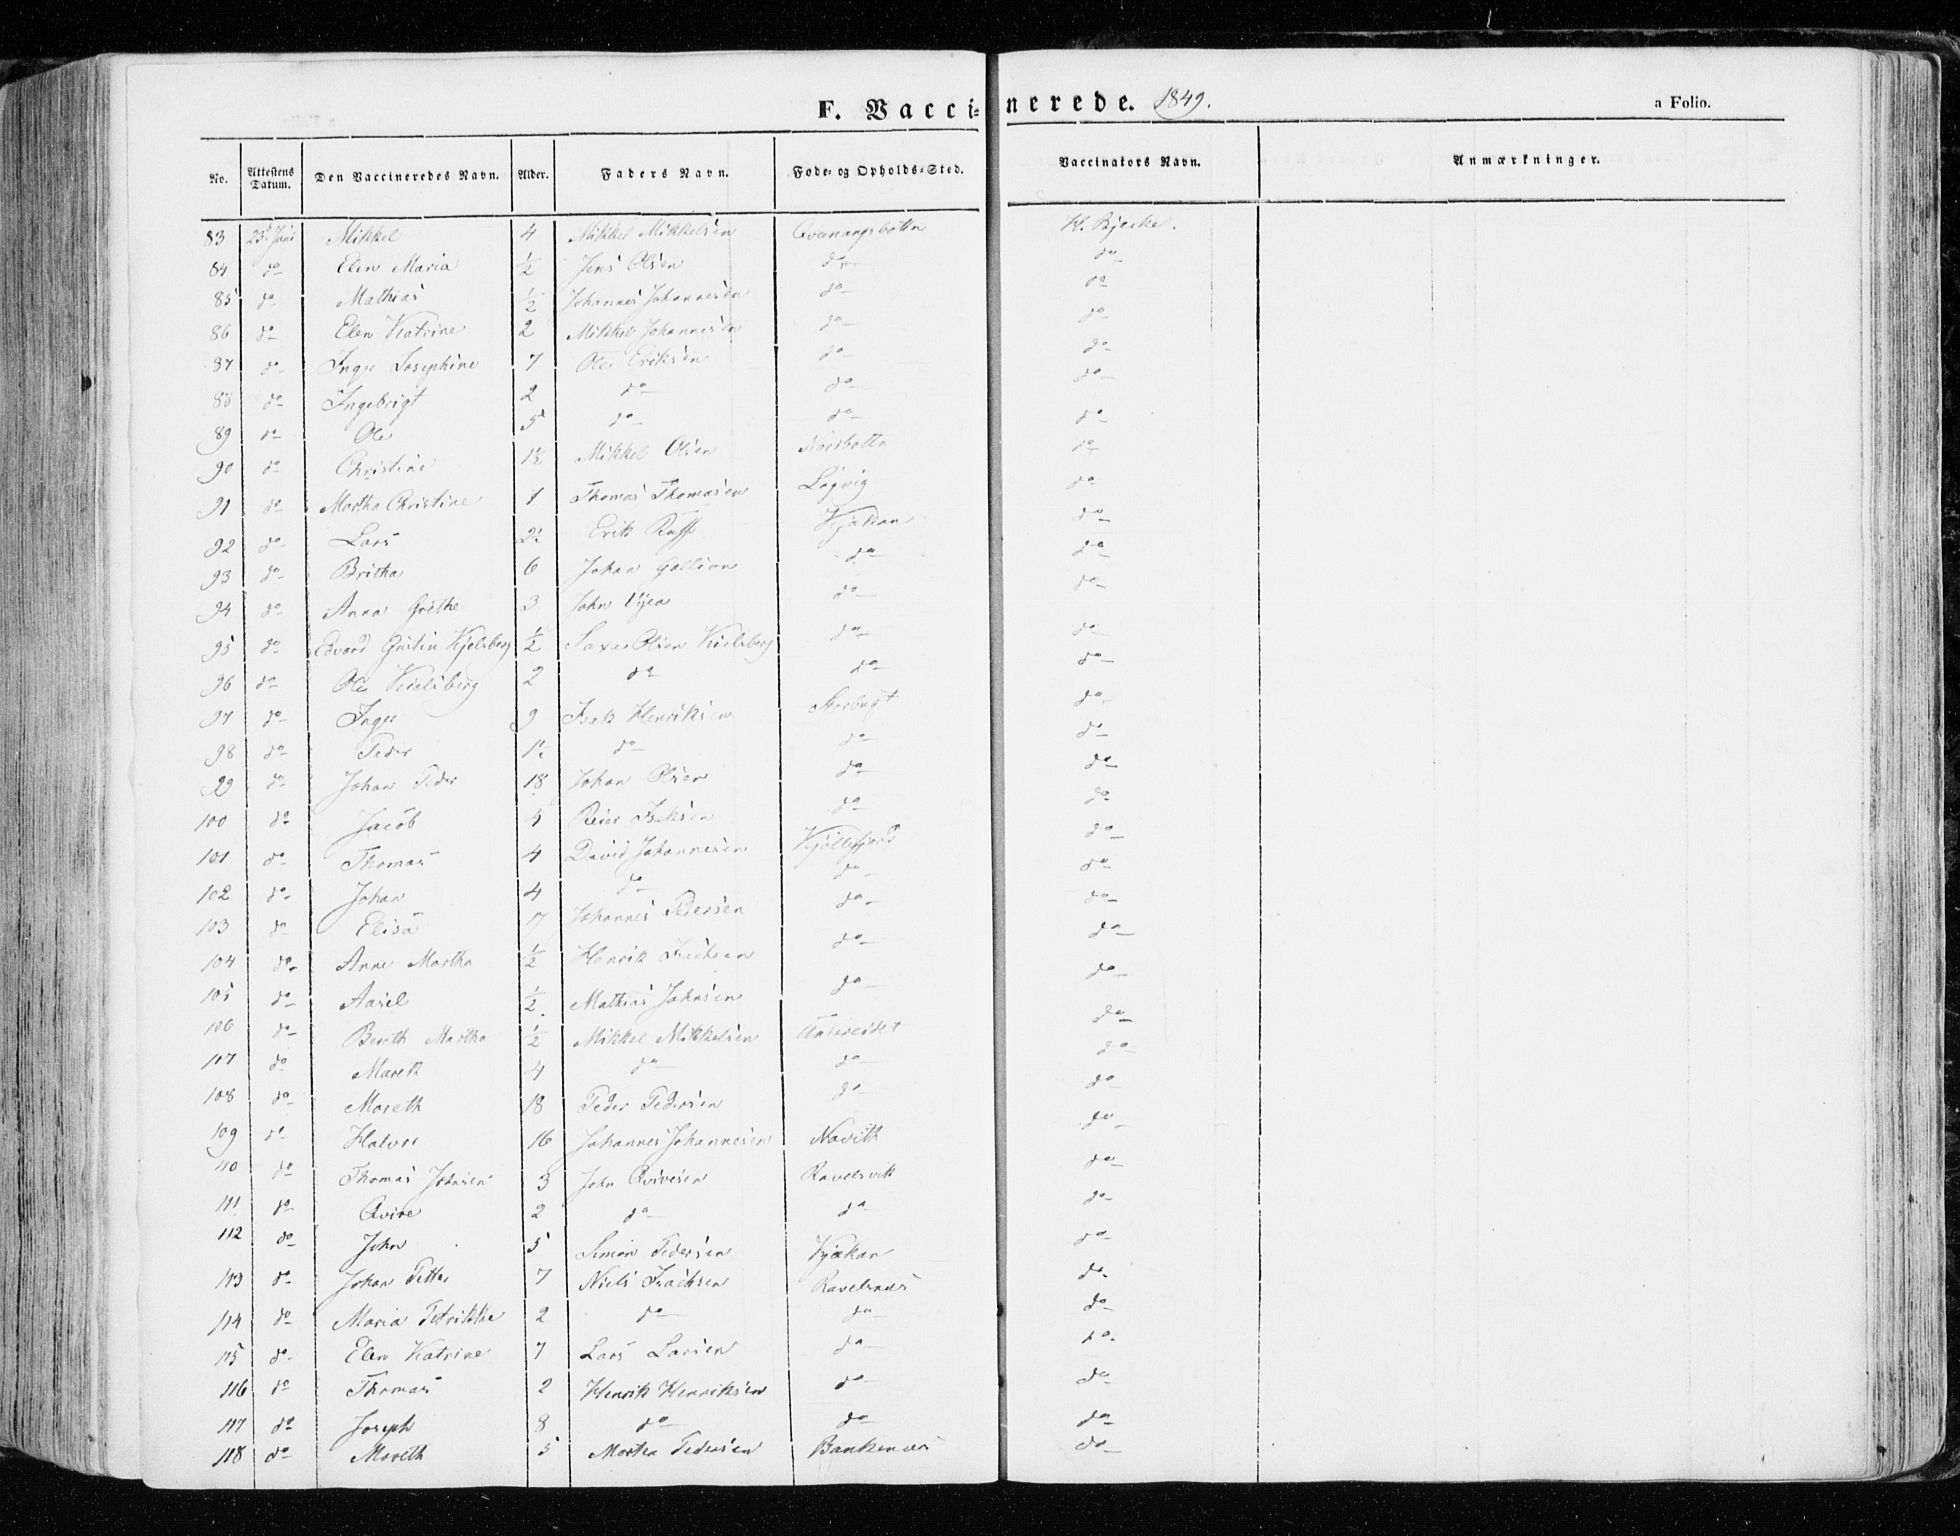 F. Vaccinerede. 1849.
a Folio.
No. | Attestens Datum. | Den Vaccineredes Navn. | Alder. | Faders Navn. | Føde- og Opholds-Sted. | Vaccinators Navn. | Anmærkninger.
83 23d Juni Mikkel 4 Mikkel Mikkelsen Qvænangsbotten H. Bjerke.
84 do Elen Maria ½ Jens Olsen do do
85 do Mathias ½ Johannes Johannesen do do
86 do Elen Katrine 2 Mikkel Johannesen do do
87 do Inger Josephine 7 Ole Eriksen do do
88 do Ingebrigt 2 do do do
89 do Ole 5 do do do
90 do Christine 1½ Mikkel Olsen Nordbotten do
91 do Martha Christine 1 Thomas Thomasen Løgvig do
92 do Lars 2½ Erik Ruff Kjækan do
93 do Britha 6 Johan do do
94 do Anna Grethe 3 John do do
95 do Edvard Kjelsberg ½ Saxe Olsen Kielsberg do do
96 do Ole Kielsberg 2 do do do
97 do Inger 9 Isak Henriksen Storbugt do
98 do Peder 1½ do do do
99 do Johan Peder 18 Johan Olsen do do
100 do Jacob 5 Reier Isaksen do do
101 do Thomas 4 David Johannesen Kjøllefjord do
102 do Johan 4 do do do
103 do Elisa 17 Johannes Pedersen do do
104 do Anne Martha ½ Henrik Isachsen do do
105 do Aasel ½ Mathias Johnsen do do
106 do Bereth Martha ½ Mikkel Mikkelsen do
107 do Mareth 4 do do do
108 do Mareth 18 Peder Pedersen do do
109 do Halvor 16 Johannes Johannesen Navith do
110 do Thomas Johnsen 3 John Qvivesen Ravelsvik do
111 do Qvive 2 do do do
112 do John 5 Simon Pedersen Kjækan do
113 do Johan Petter 7 Niels Isachsen Ravelsnæs do
114 do Maria Petrikke 2 do do do
115 do Elen Katrine 7 Lars Larsen do do
116 do Thomas 2 Henrik Henriksen do do
117 do Joseph 8 do do do
118 do Mareth 5 Morten Pedersen Bankenæs do